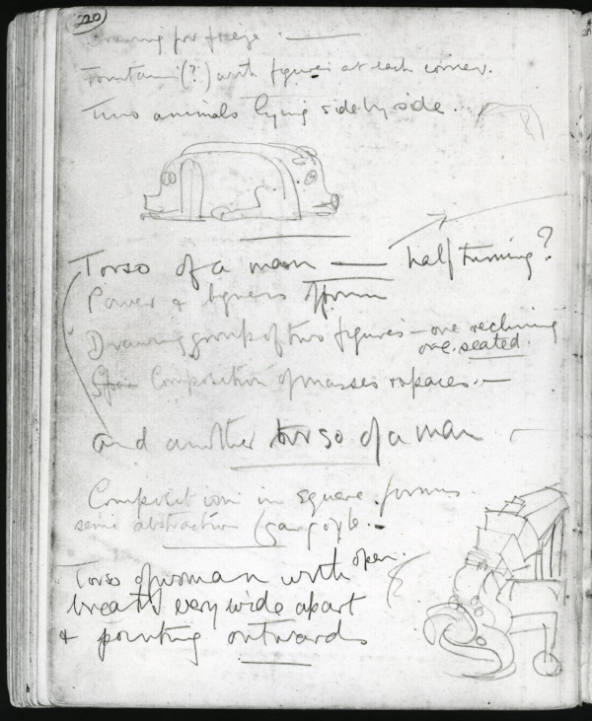 220
Drawing for frieze. —
Fountain (?) with figures at each corner.
Two animals lying side by side.
Torso of a man — half turning?
Power & bigness of form
Drawing group of two figures — one reclining
one seated.
Composition of masses & spaces. —
and another torso of a man
Composition in square forms
semi abstraction (gargoyle. —
Torso of woman with open
breasts very wide apart
& pointing outwards